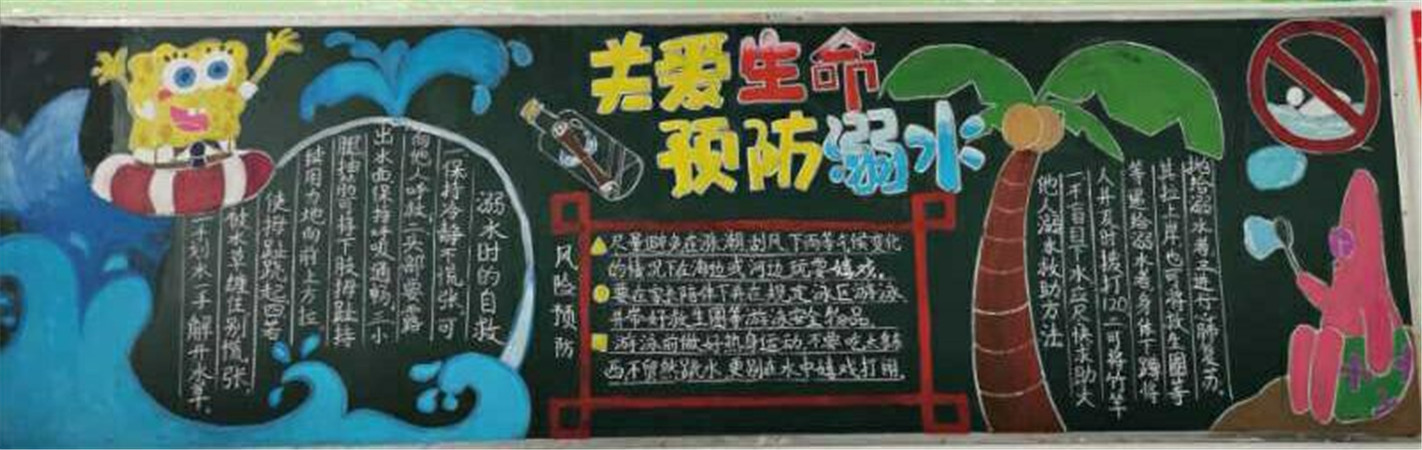 关爱生命
预防溺水
溺水时的自救
一保持冷静不慌张，可
向他人呼救，二头部要露
出水面保持呼吸通畅，三小
腿抽筋可将下肢拇趾持
续用力地向前上方拉，
使拇趾跷起，四若
被水草缠住别慌张，
一手划水一手解开水草。
风险预防
尽量避免在涨潮刮风下雨等气候变化
的情况下在海边或河边玩耍嬉戏。
要在家长陪伴下并在规定泳区游泳
并带好救生圈等游泳安全物品
游泳前做好热身运动，不要吃太多东
西不贸然跳水，更别在水中嬉戏打闹。
他人溺水救助方法
一不盲目下水应尽快求助大
人并及时拨打120二可将竹竿
等递给溺水者身体下蹲将
其拉上岸也可将救生圈等
抛给溺水者三进行心肺复苏。